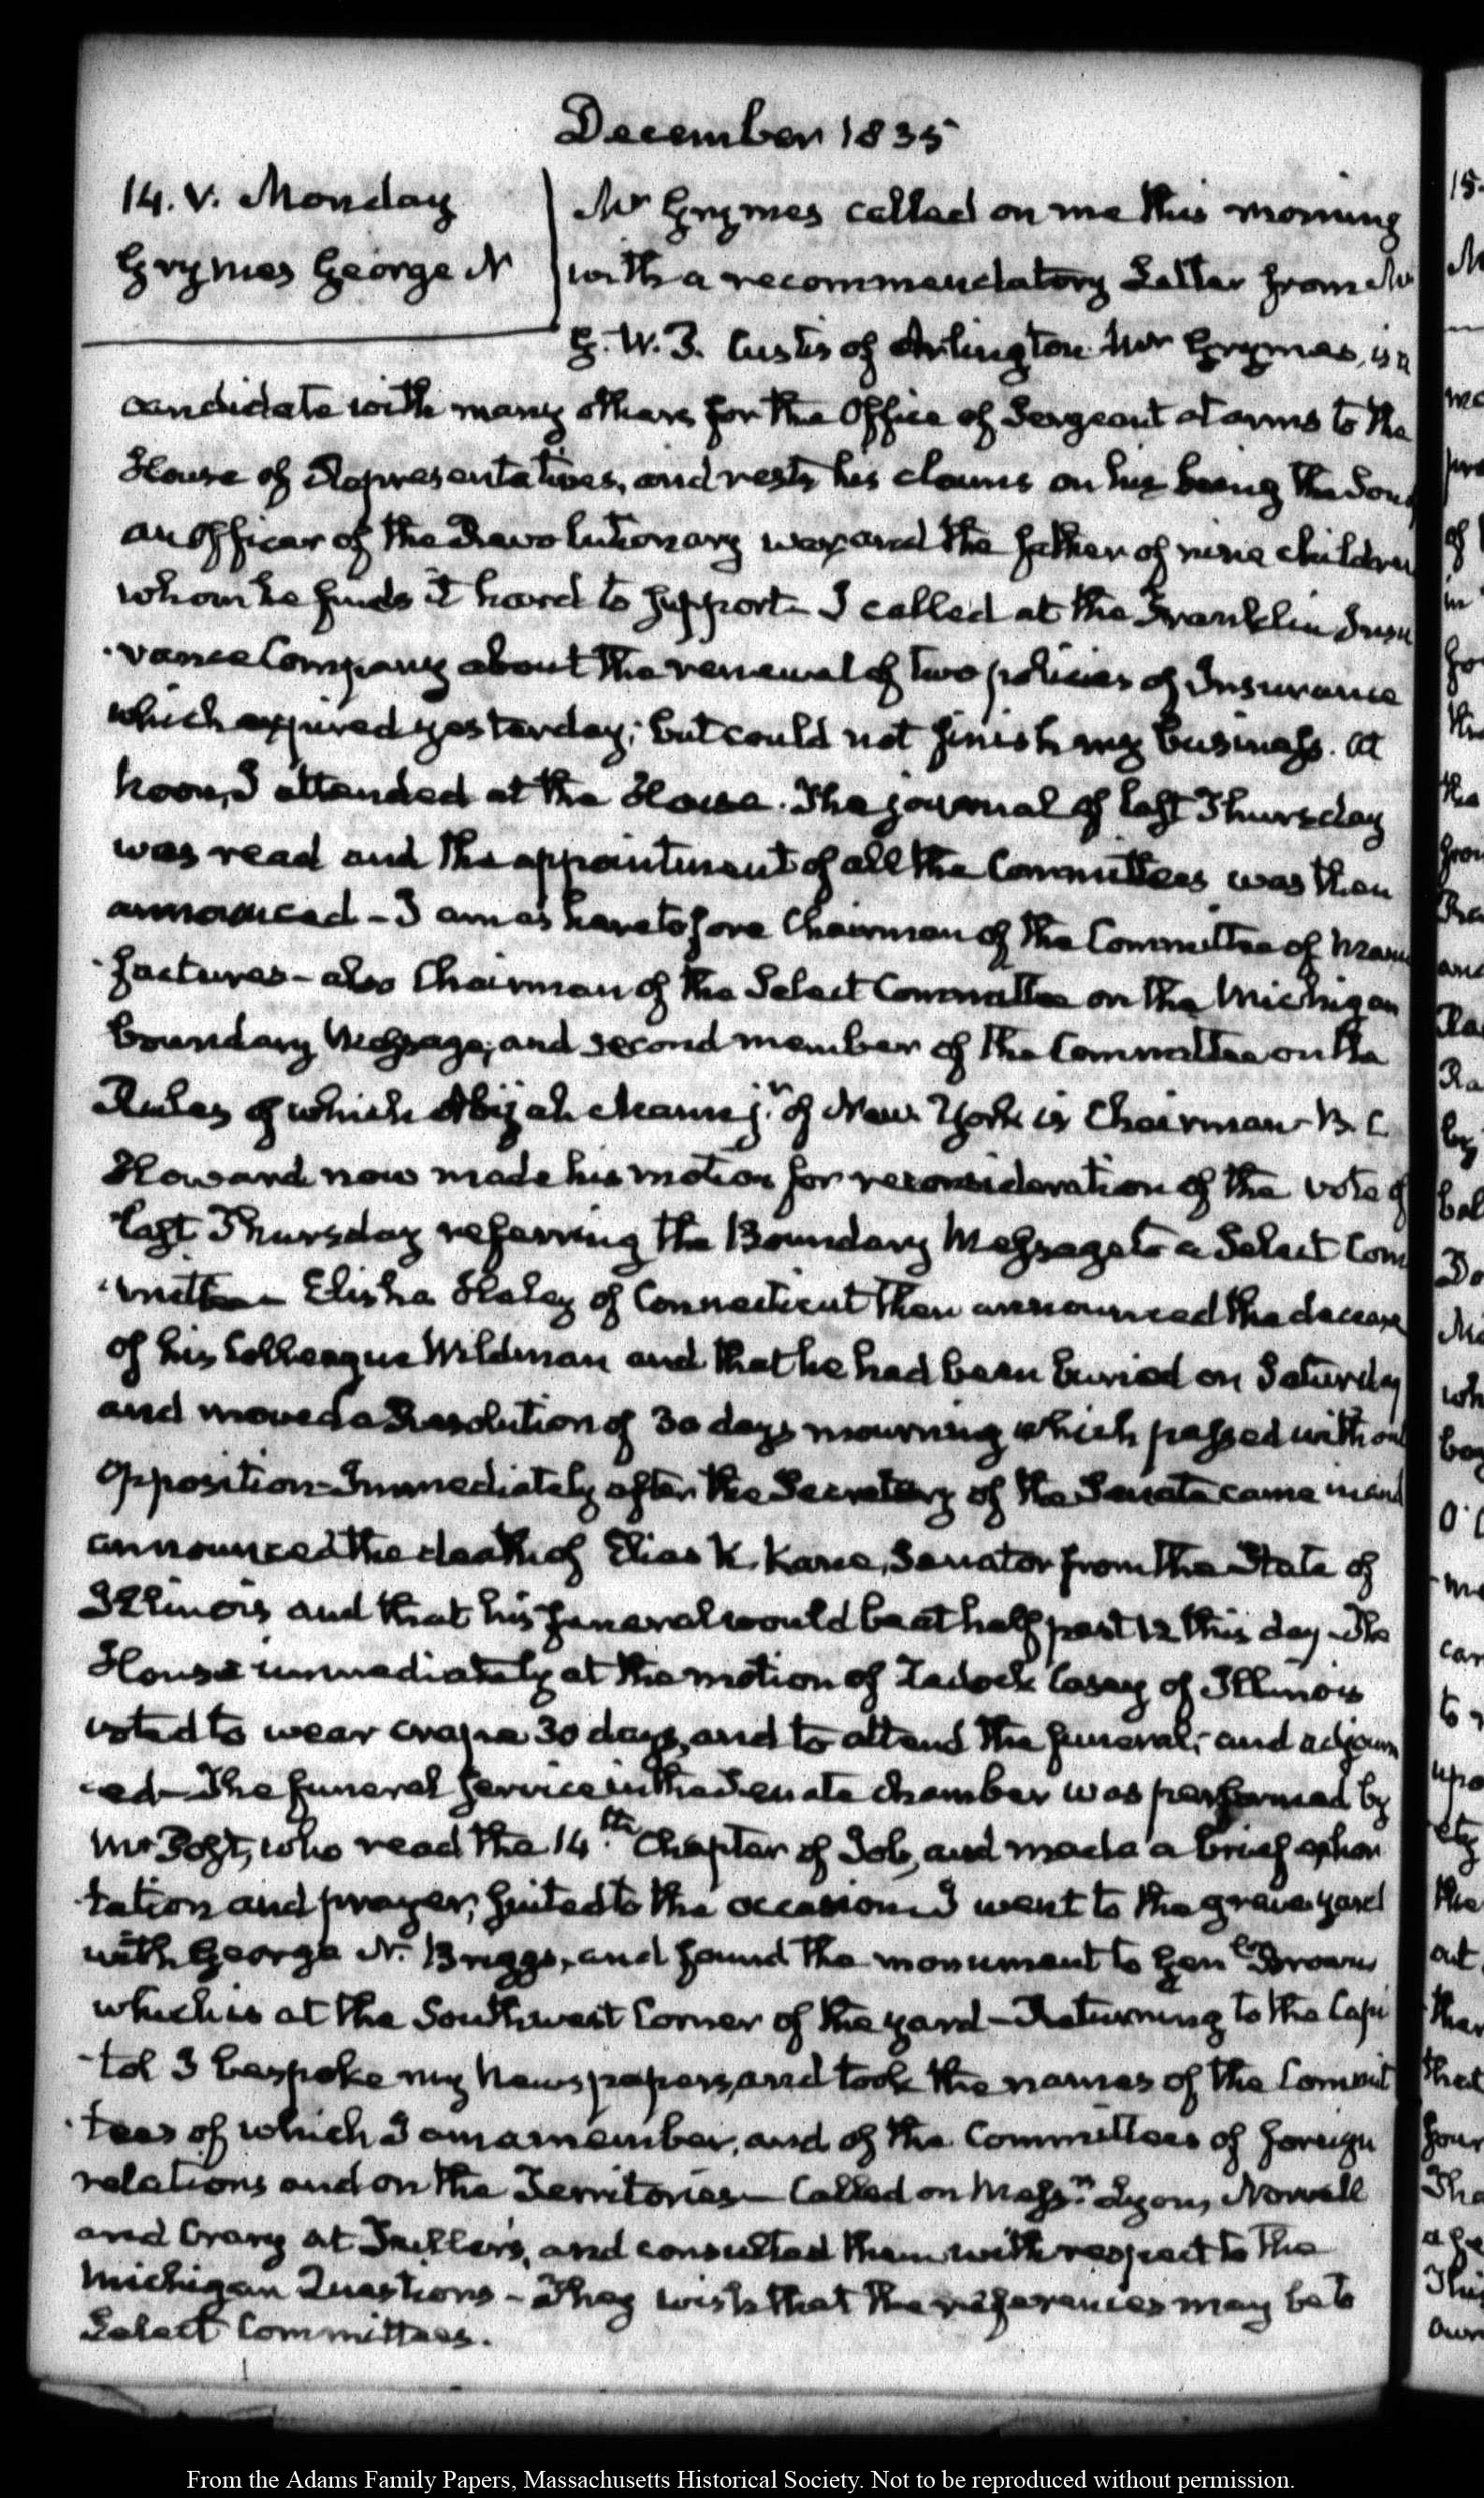 December 1835
14. V. Monday
Grymes George N
Mr Grymes called on me this morning
with a recommendatory Letter from Mr
G. W. P. Custis of Arlington. Mr Grymes, is a
candidate with many others for the Office of Sergeant at arms to the
House of Representatives, and rests his claims on his being the Son of
an Officer of the Revolutionary war, and the father of nine children
whom he finds it hard to support— I called at the Franklin Insu
-rance Company about the renewal of two policies of Insurance
which expired yesterday; but could not finish my business. At
Noon, I attended at the House. The journal of last Thursday
was read and the appointment of all the Committees was then
announced— I am as heretofore Chairman of the Committee of Manu
-factures— also Chairman of the Select Committee on the Michigan
boundary Message; and second member of the Committee on the
Rules of which Abijah Mann jr. of New York is Chairman— B. C.
Howard now made his motion for reconsideration of the vote of
last Thursday referring the Boundary Message to a Select Com
-mittee— Elisha Haley of Connecticut then announced the decease
of his Colleague Wildman and that he had been buried on Saturday
and moved a Resolution of 30 days mourning which passed without
opposition— Immediately after the Secretary of the Senate came in and
announced the death of Elias K. Kane, Senator from the State of
Illinois and that his funeral would be at half past 12 this day— The
House immediately at the motion of Zadock Casey of Illinois
voted to wear crape 30 days, and to attend the funeral; and adjourn
-ed— The funeral service in the Senate chamber was performed by
Mr Post, who read the 14.th Chapter of Job, and made a brief exhor
-tation and prayer, suited to the occasion— I went to the grave yard
with George N. Briggs, and found the monument to Genl Brown
which is at the Southwest Corner of the yard— Returning to the Capi
-tol I bespoke my Newspapers, and took the names of the Commit
-tees of which I am a member, and of the Committees of foreign
relations and on the Territories— Called on Messrs. Lyon, Norvell
and Crary at Fuller's, and consulted them with respect to the
Michigan Questions— They wish that the references may be to
Select Committees.
From the Adams Family Papers, Massachusetts Historical Society. Not to be reproduced without permission.